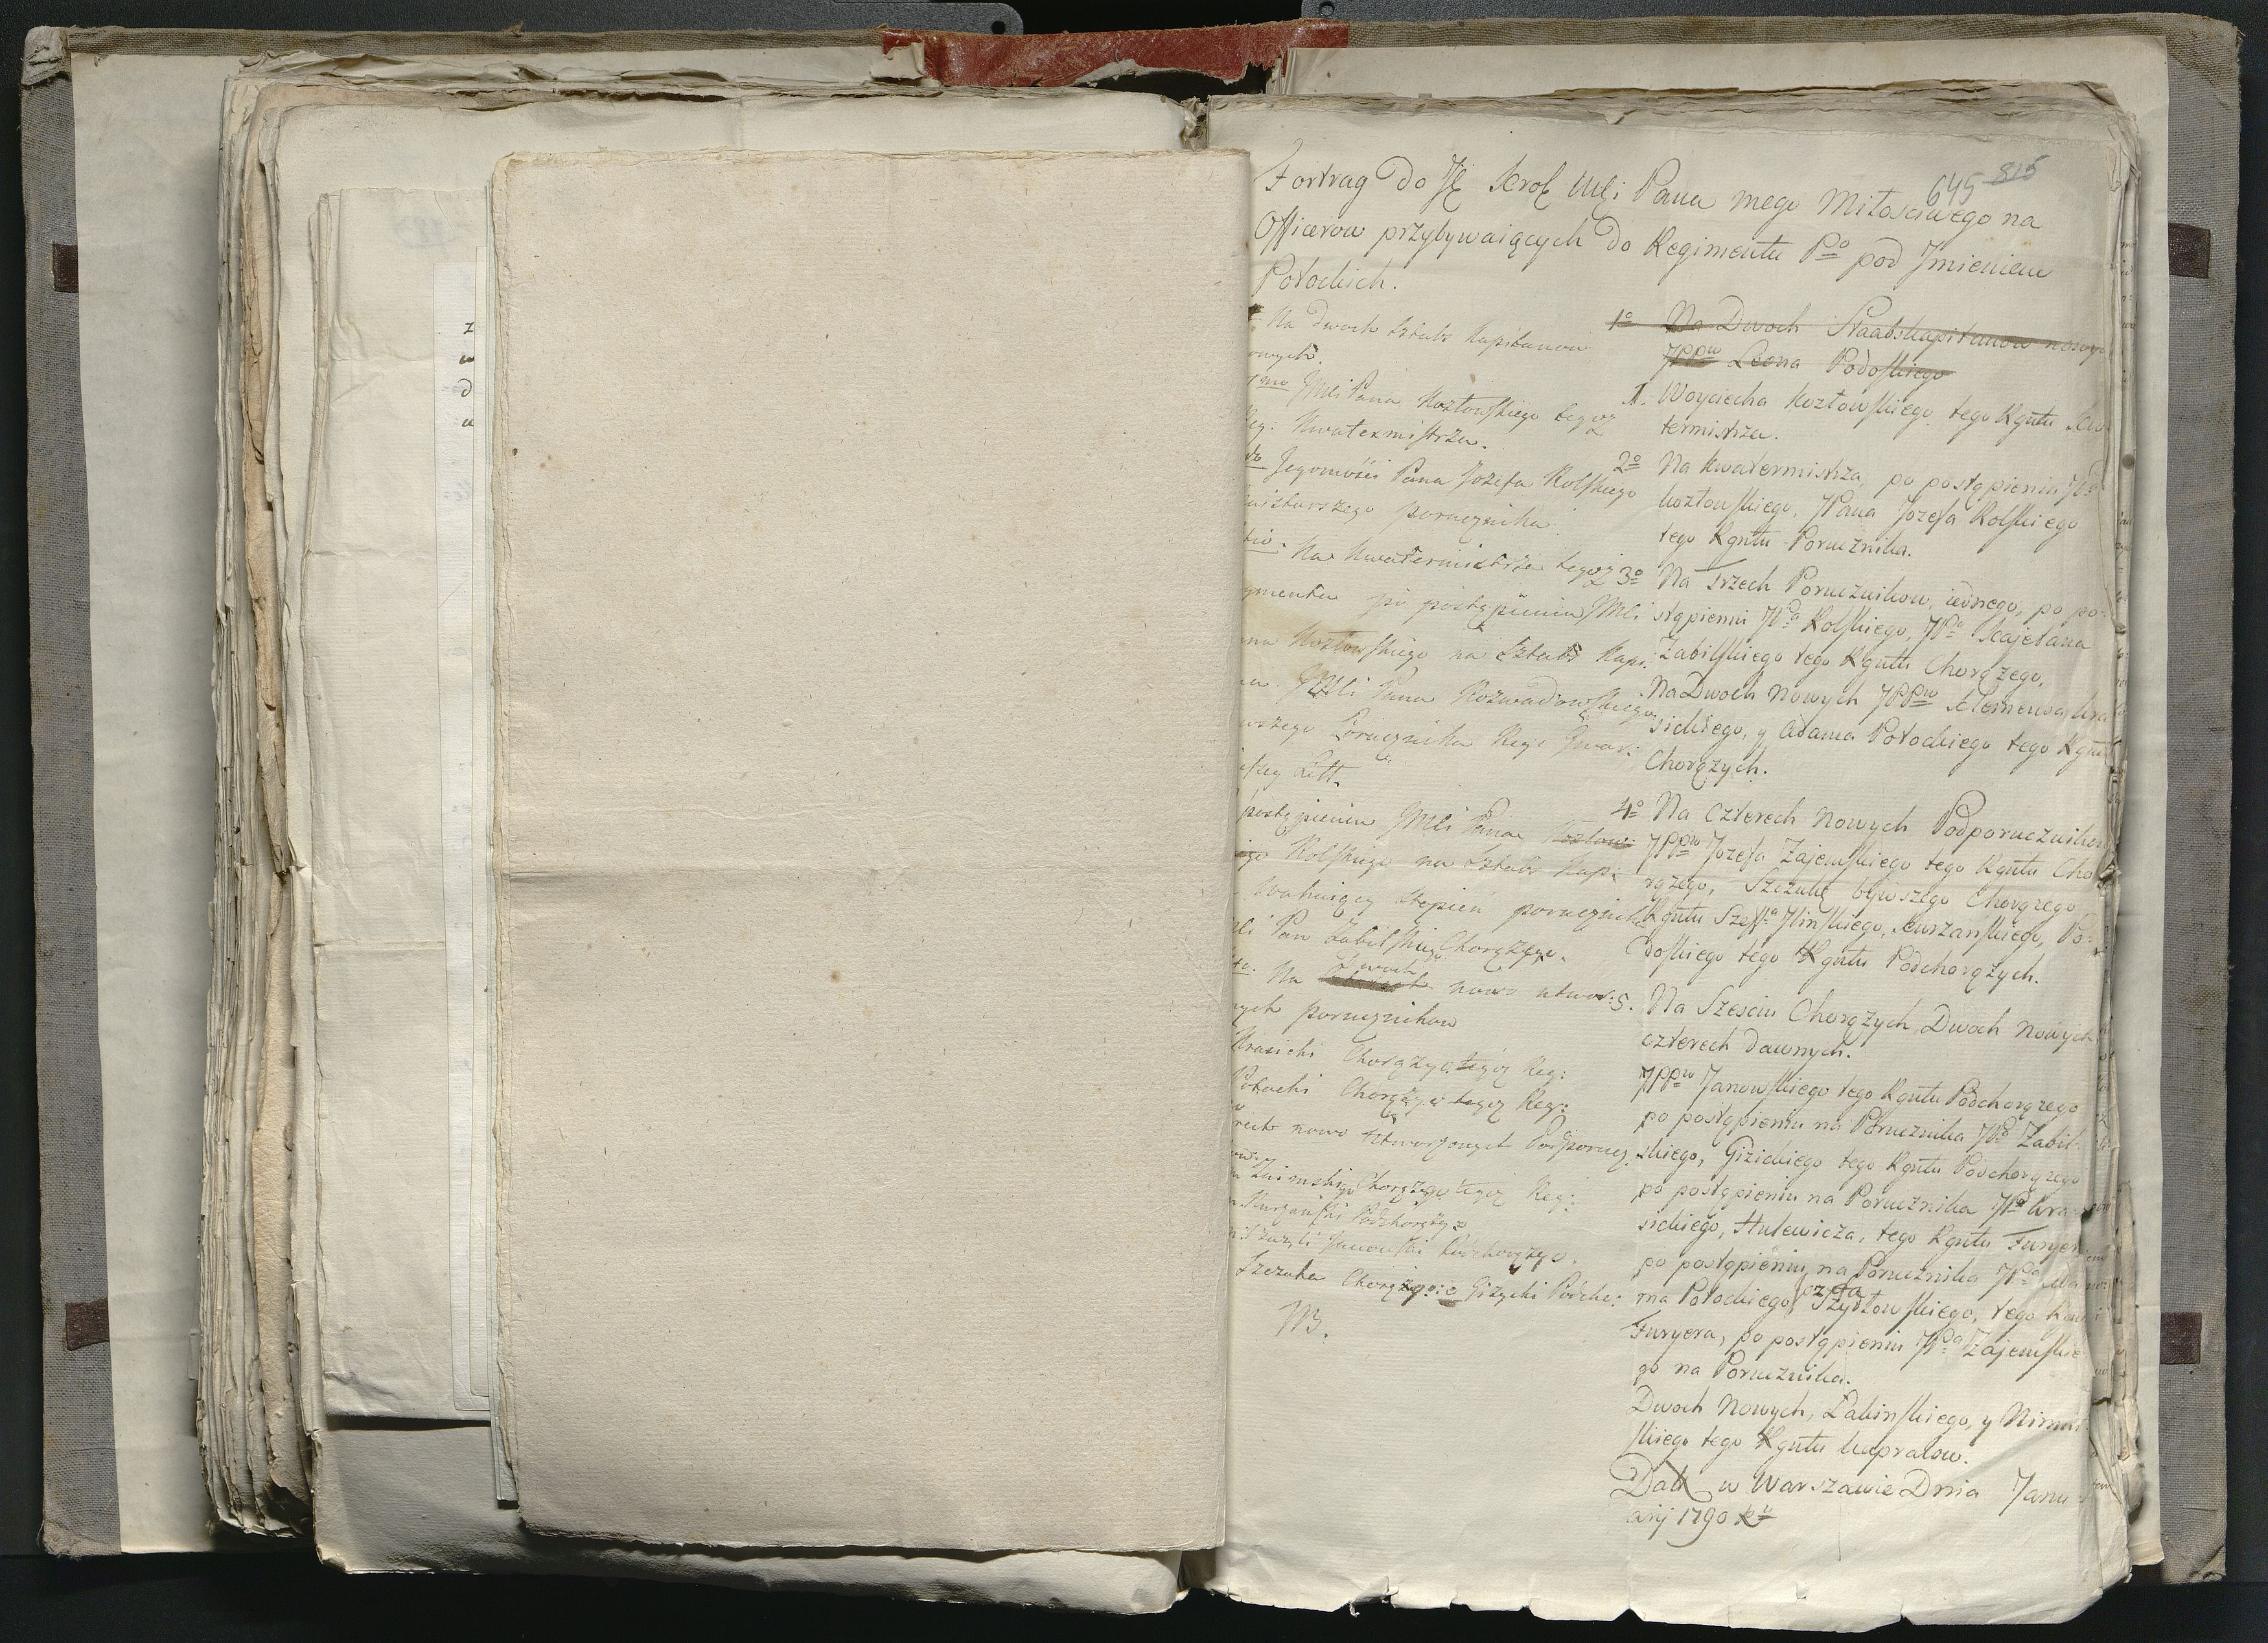 645 815
Fortrag Do JK Krol Mći Pana mego Miłosciwego na
Officerow przybywaiących Do Regimentu Po pod Jmieniem
Potockich.
Na dwoch Sztabs Kapitanow
owych.
1mo JMći Pana Kozłowskiego tegoz
Reg: Kwatermistrza.
do Jegomości Pana Jozefa Rolskiego
naistarszego porucznika
tio. Na Kwatermistrza tegoz
gimentu po postąpieniu JMći
ana Kozłowskiego na Sztabs Kapi:
na. JMći Pana Rozwadowskiego
wszego Porucznika Regi Gwar:
Litt.
postąpieniu JMći Pana Kozłow:
iego Rolskiego na Sztabs Kap:
Wakuiący stepień porucznika
Mći Pan Zabilskiego Chorążego.
to. Na Dwoch nowo utwor:
nych porucznikow
Krasicki Chorąży tegoż Reg:
Potocki Chorąży tegoż Reg:
nowo Utworzonych Podporucz.
Zaiemskiego Chorążego tegoż Reg:
Kurzański Podchorąży
Janowski Podchorążego.
Szczuka Chorąży Giżycki Podcho:
NB.
1o Na Dwoch Staabskapitanow nowych
JPPw Leona Podoskiego
1. Woyciecha Kozłowskiego tego Rgntu Kwa
termistrza.
2o Na Kwatermistrza, po postąpieniu JPa
Kozłowskiego, JPana Jozefa Rolskiego
tego Rgntu Porucznika.
3o Na Trzech Porucznikow, iednego, po po-
stąpieniu JPa Rolskiego, JPa Kajetana
Zabilskiego tego Rgntu Chorążego,
Na Dwoch Nowych JPPw Klemensa Kra
sickiego, y Adama Potockiego tego Rgntu
Chorążych.
4o Na Czterech Nowych Podporucznikow
JPPw Jozefa Zajemskiego tego Rgntu Cho
rążego, Szczukę bywszego Chorążego
Rgntu Szeffa Jlinskiego, Kurzańskiego, Po-
doskiego tego Rgntu Podchorążych.
5. Na Szesciu Chorążych, Dwoch Nowych
czterech dawnych.
JPPw Janowskiego tego Rgntu Podchorążego
po postąpieniu na Porucznika JPa Zabil-
skiego, Gizickiego tego Rgntu Podchorążego
po postąpieniu na Porucznika JPa Kra
sickiego, Hulewicza, tego Rgntu Furyera
po postąpieniu na Porucznika JPa Ada
ma Potockiego, Jozefa Szydłowskiego, tego
Furyera, po postąpieniu JPa Zajemskie
go na Porucznika.
Dwoch Nowych, Łabinskiego, y
skiego tego Rgntu Kapralow.
Datt w Warszawie Dnia Janu
arij 1790 Ru